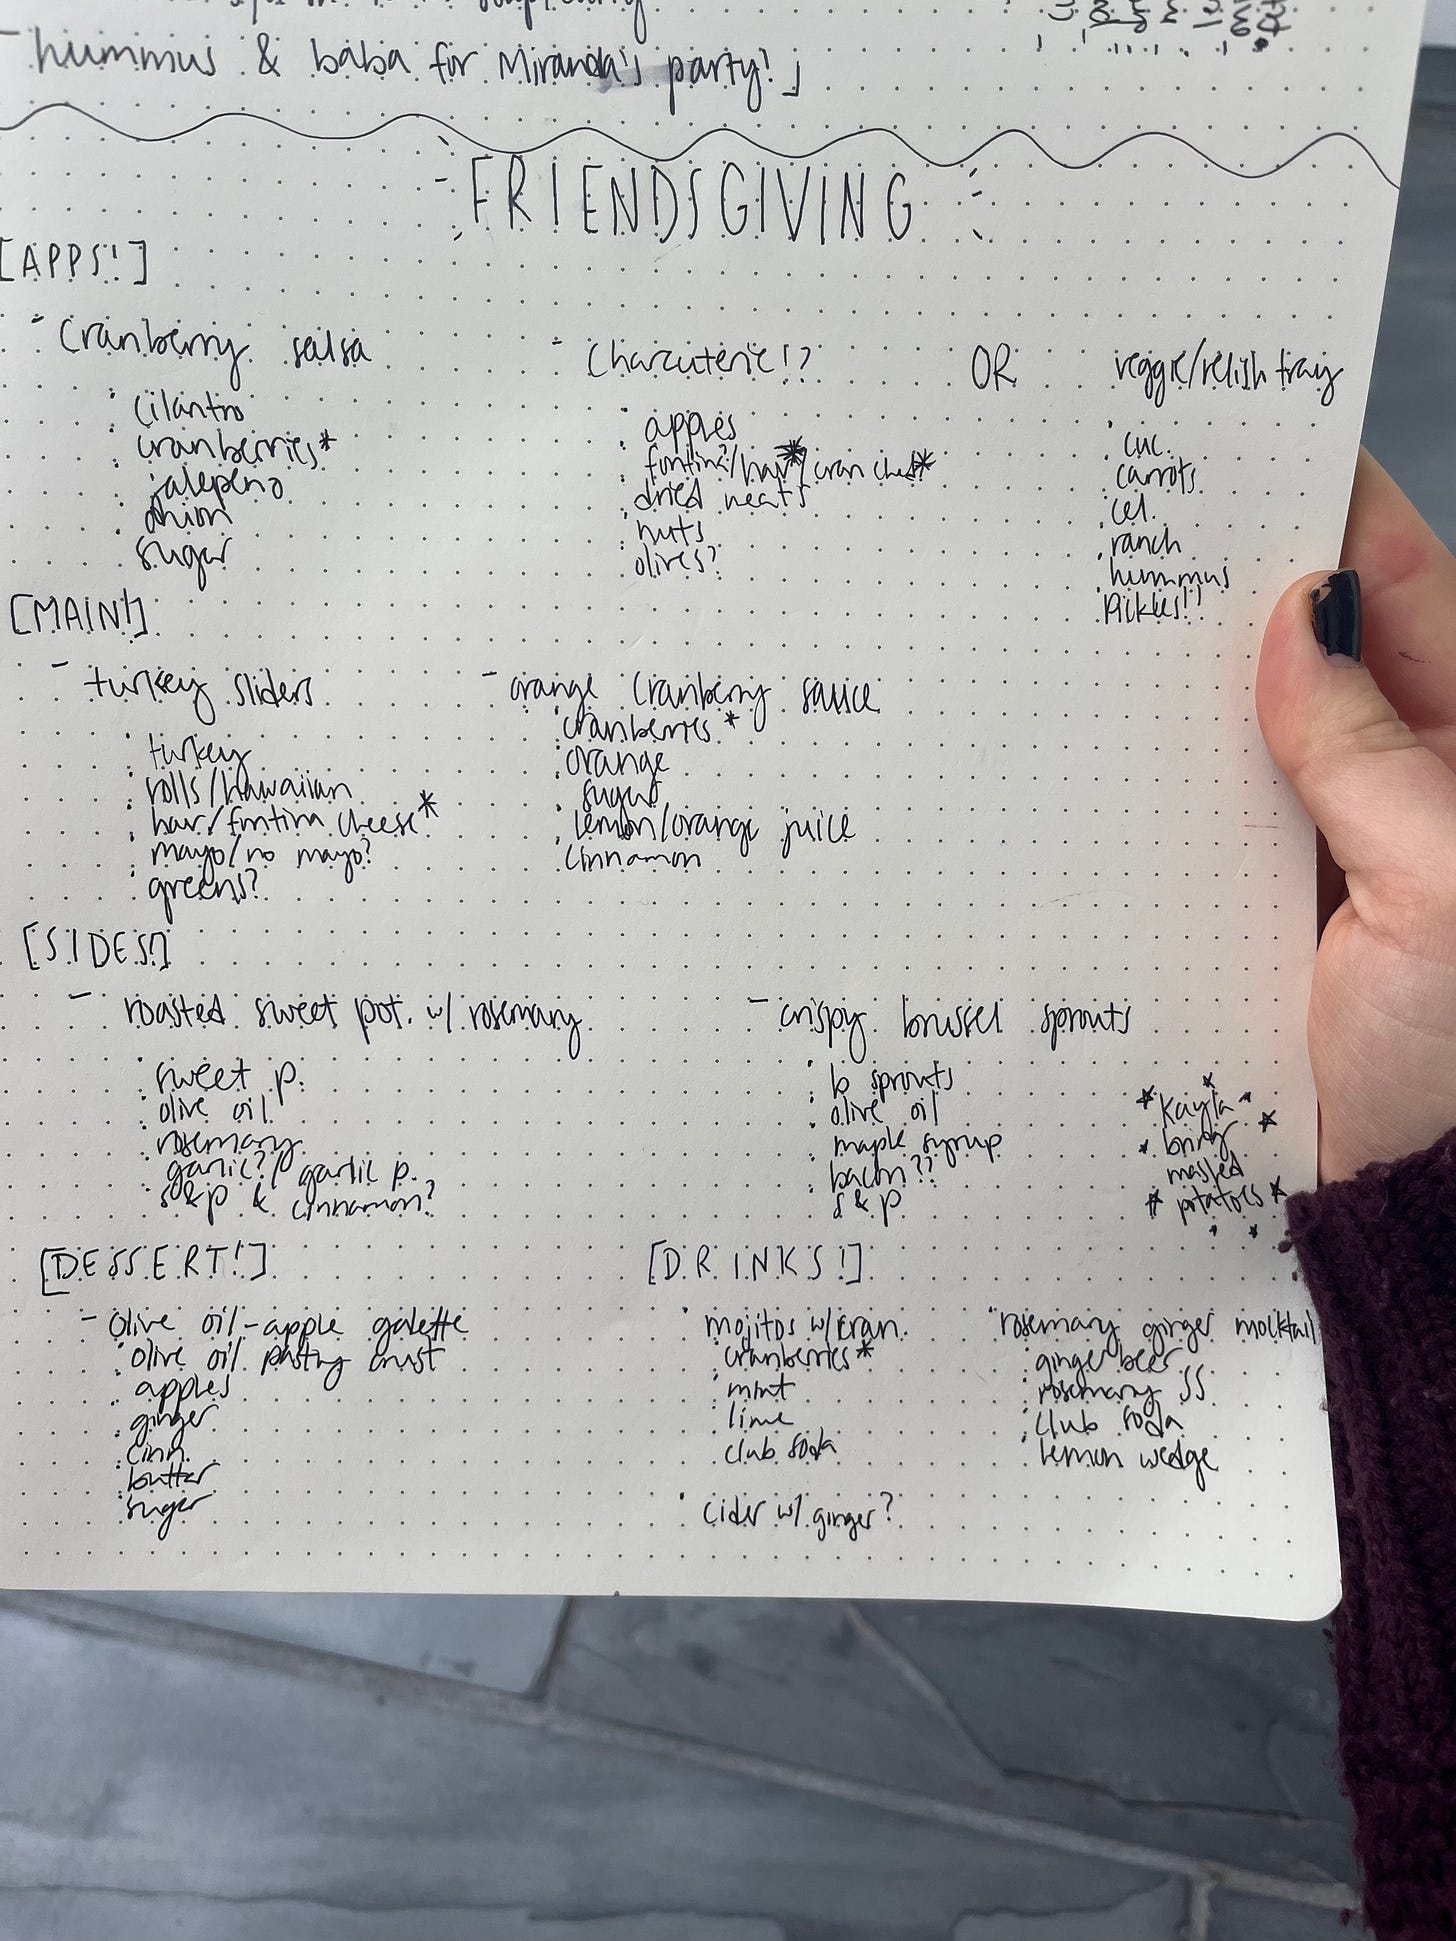 - hummus & baba for Miranda's party!
FRIENDSGIVING
[APPS!]
- Cranberry salsa
cilantro
cranberries*
jalepeno
onion
sugar
- Charcuterie!?
apples
fontina?/hav*/cran ched*
dried meats
nuts
olives?
OR
veggie/relish tray
cuc.
carrots
cel.
ranch
hummus
Pickles!!
[MAIN!]
- turkey sliders
turkey
rolls/hawaiian
hav/fontina cheese*
mayo/no mayo?
greens?
- orange cranberry sauce
cranberries*
orange
sugar
lemon/orange juice
cinnamon
[SIDES!]
- roasted sweet pot. w/ rosemary
sweet p.
olive oil
rosemary
garlic?/garlic p.
s&p & cinnamon?
- crispy brussel sprouts
b sprouts
olive oil
maple syrup
bacon??
s & p
*Kayla
bring
mashed
*potatoes*
[DESSERT!]
- Olive oil-apple galette
olive oil pastry crust
apples
ginger
cinn.
butter
suger
[DRINKS!]
mojitos w/cran.
cranberries*
mint
lime
club soda
cider w/ ginger?
rosemary ginger mocktail
ginger beer
rosemary SS
club soda
lemon wedge